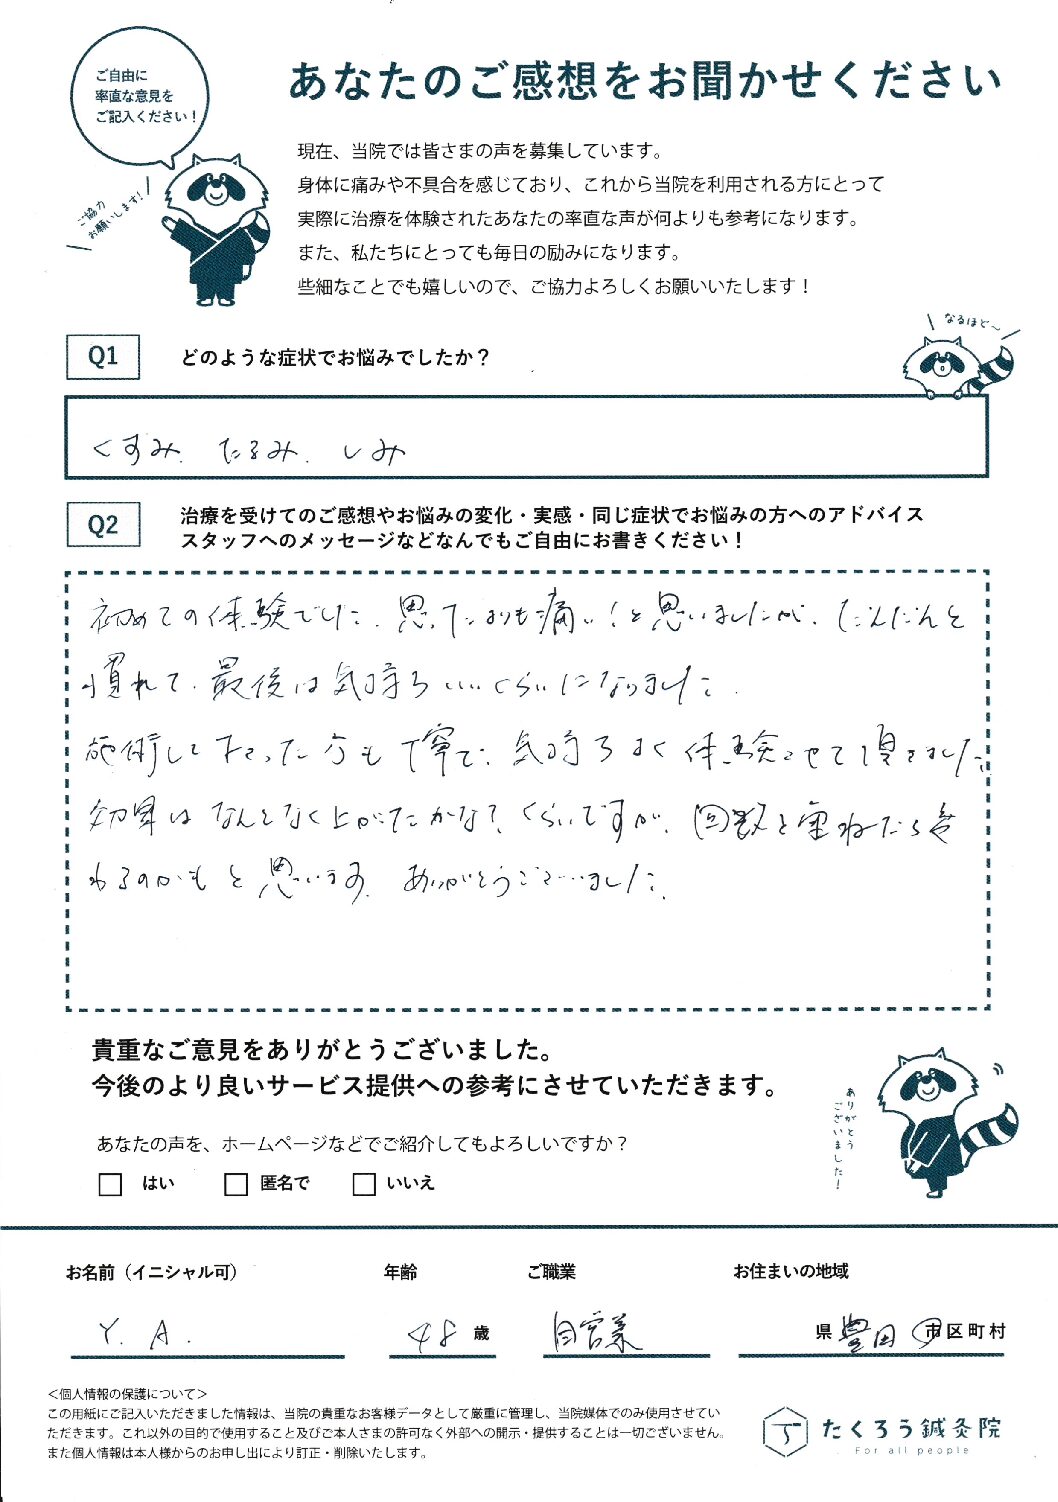 ご自由に
率直な意見を
ご記入ください！
ご協力
お願いします！
あなたのご感想をお聞かせください
現在、当院では皆さまの声を募集しています。
身体に痛みや不具合を感じており、これから当院を利用される方にとって
実際に治療を体験されたあなたの率直な声が何よりも参考になります。
また、私たちにとっても毎日の励みになります。
些細なことでも嬉しいので、ご協力よろしくお願いいたします！
なるほど〜
Q1 どのような症状でお悩みでしたか？
くすみ、たるみ、しみ
Q2 治療を受けてのご感想やお悩みの変化・実感・同じ症状でお悩みの方へのアドバイス
スタッフへのメッセージなどなんでもご自由にお書きください！
初めての体験でした。思ったよりも痛い！と思いましたが、だんだんと
慣れて、最後は気持ちいいくらいになりました。
施術して下さった方も丁寧で、気持ちよく体験させて頂きました。
効果はなんとなく上がったかな？くらいですが、回数を重ねたら変
わるのかもと思います。ありがとうございました。
貴重なご意見をありがとうございました。
今後のより良いサービス提供への参考にさせていただきます。
ありがとう
ございました！
あなたの声を、ホームページなどでご紹介してもよろしいですか？
はい 匿名で いいえ
お名前（イニシャル可） 年齢 ご職業 お住まいの地域
Y. A. 48 歳 自営業 県 豊田 市区町村
＜個人情報の保護について＞
この用紙にご記入いただきました情報は、当院の貴重なお客様データとして厳重に管理し、当院媒体でのみ使用させてい
ただきます。これ以外の目的で使用すること及びご本人さまの許可なく外部への開示・提供することは一切ございません。
また個人情報は本人様からのお申し出により訂正・削除いたします。
たくろう鍼灸院
For all people